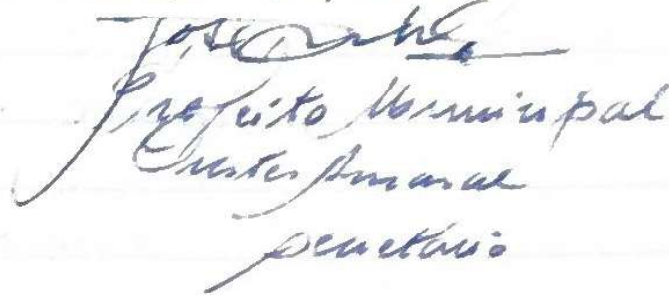 José
Prefeito Municipal
Amaral
secretário